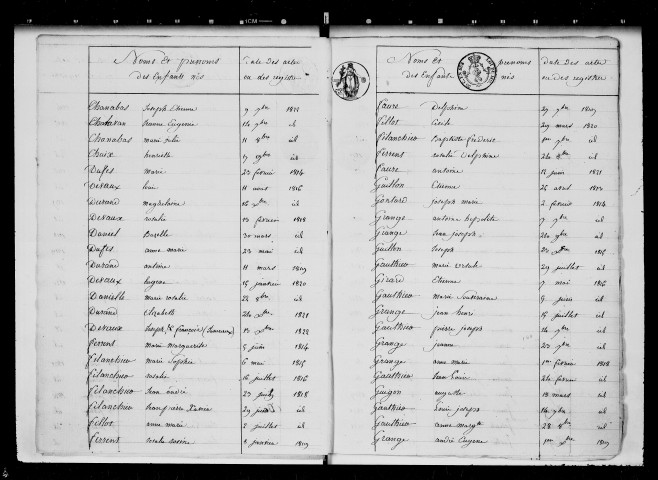 Noms et prenoms
des Enfants nés
Date Des actes
ou des registres
Chanabas Joseph Etienne 9 7bre 1821
Chalavan Jeanne Eugenie 14 7bre id
Chanabas marie Julie 11 8bre id
Chaix henriette 17 id
Dufes marie 23 fevrier 1814
Devaux 11 aout 1816
Durand Magdeleine 16 id
Devaux rosalie 13 fevrier 1818
Daniel Bazelle 30 mars id
Dufes anne marie 23 mai id
Durand antoine 11 mars 1819
Devaux Eugene 15 janvier 1820
Danielle marie rosalie 24 8bre id
Durand Elizabeth 1821
Devaux Joseph françois 1822
Ferrent marie marguerite 5 juin 1814
Filanchier marie Sophie 6 mai 1815
Filanchier rosalie 16 juillet 1816
Filanchier Jean andré 1818
Filanchier Xavier 29 id
Fillot anne marie 2 juillet id
Ferrent 4 janvier 1819
Noms et prenoms
des Enfants nés
date Des actes
ou des registres
Faure Delphine 29 7bre 1819
Fillot Cecile 29 mars 1820
Filanchier Baptiste frederic 1er 7bre id
Ferrent rosalie Delphine 24 8bre id
Faure antoine 12 juin 1821
Guillon Etienne 26 aout 1813
Gontard joseph marie 2 fevrier 1814
Grange antoine hypolite 7 7bre id
Grange Jean joseph id
Guillon Joseph 1815
Gauthier marie Ursule 29 juillet id
Girard Etienne 7 mai 1816
Gauthier Marie 9 juin id
Grange jean henri 15 juillet id
Gauthier pierre joseph 14 7bre id
Grange jeanne 23 7bre id
Grange anne marie 1er fevrier 1818
Gauthier Jean Louis 24 fevrier id
Guigon augustte 18 mars id
Gauthier Louis joseph 14 7bre id
Gauthier anne 28 8bre id
Grange andré Eugene 1819